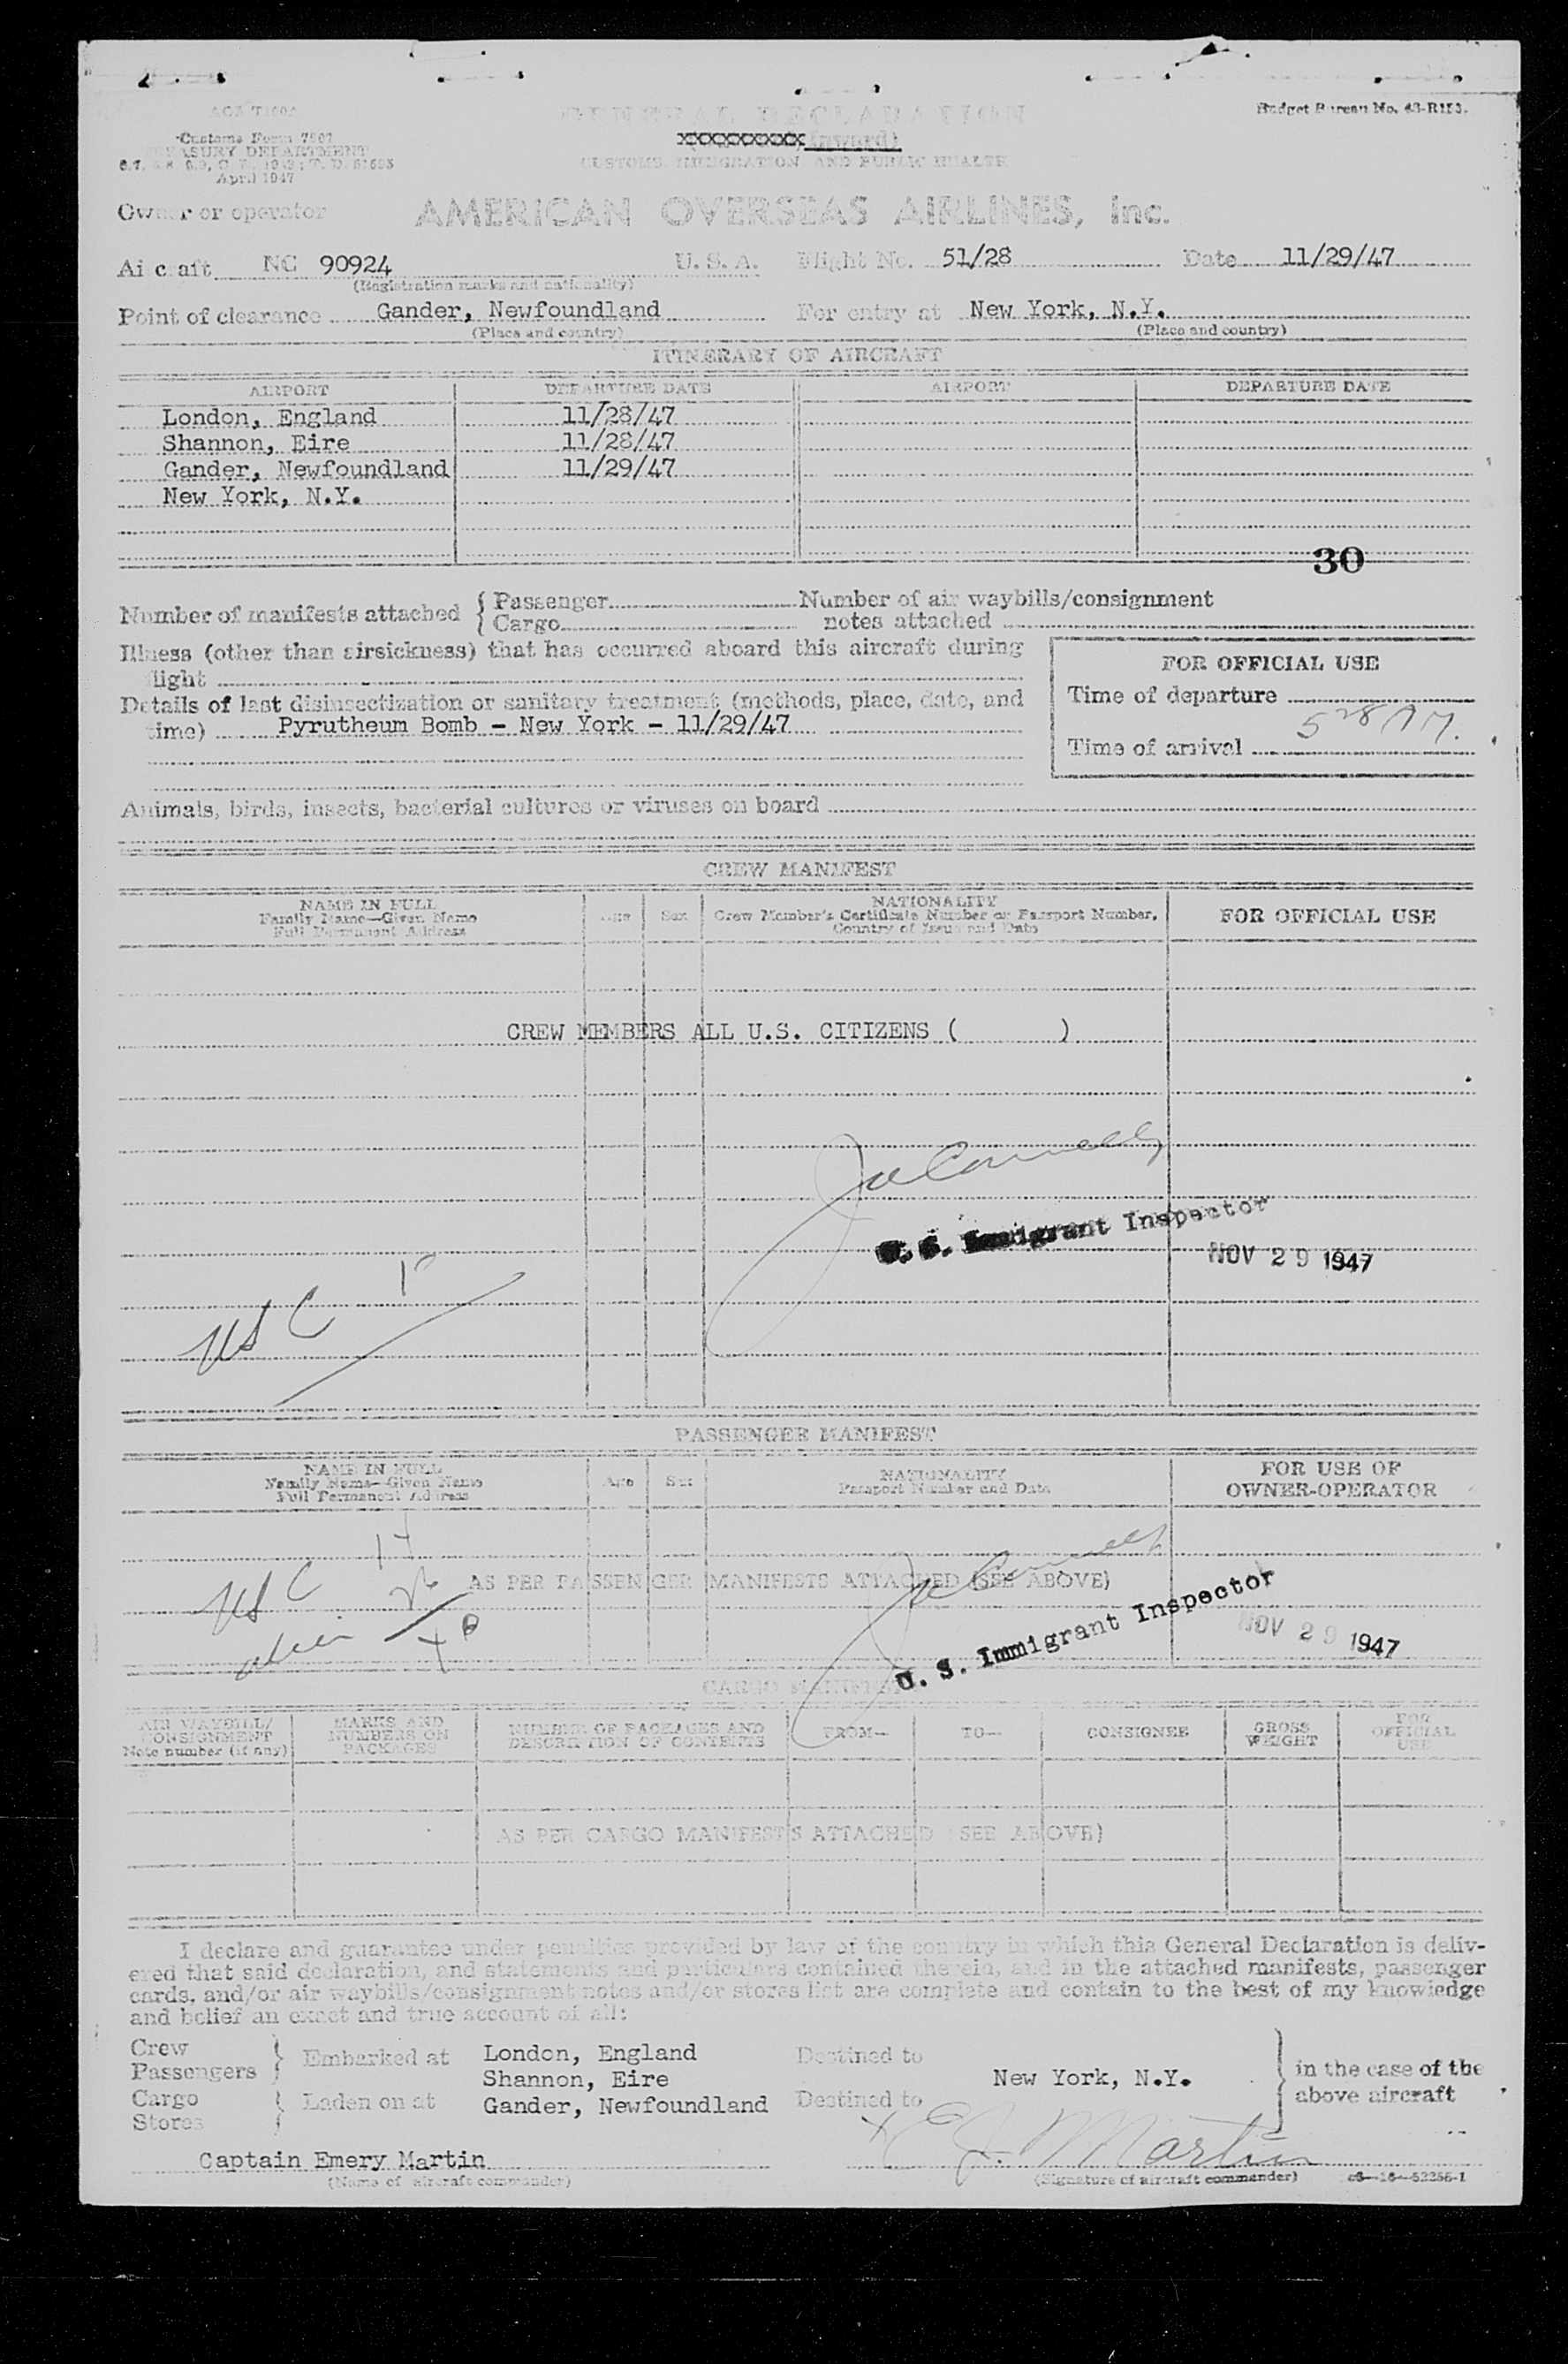 GENERAL DECLARATION
Budget Bureau No. 43-R153.
Customs Form 7507
TREASURY DEPARTMENT
April 1947
XXXXXXXXX (Inward)
CUSTOMS, IMMIGRATION AND PUBLIC HEALTH
Owner or operator AMERICAN OVERSEAS AIRLINES, Inc.
Aircraft NC 90924 U. S. A. Flight No. 51/28 Date 11/29/47
(Registration marks and nationality)
Point of clearance Gander, Newfoundland For entry at New York, N.Y.
(Place and country) (Place and country)
ITINERARY OF AIRCRAFT
AIRPORT DEPARTURE DATE AIRPORT DEPARTURE DATE
London, England 11/28/47
Shannon, Eire 11/28/47
Gander, Newfoundland 11/29/47
New York, N.Y.
30
Number of manifests attached { Passenger Number of air waybills/consignment
Cargo notes attached
Illness (other than airsickness) that has occurred aboard this aircraft during
flight
FOR OFFICIAL USE
Time of departure
Details of last disinsectization or sanitary treatment (methods, place, date, and
time) Pyrutheum Bomb - New York - 11/29/47
Time of arrival 528 AM.
Animals, birds, insects, bacterial cultures or viruses on board
CREW MANIFEST
NAME IN FULL
Family Name—Given Name
Full Permanent Address
Age Sex
NATIONALITY
Crew Member's Certificate Number or Passport Number,
Country of Issue and Date
FOR OFFICIAL USE
CREW MEMBERS ALL U.S. CITIZENS ( )
U. S. Immigrant Inspector
NOV 29 1947
US C
PASSENGER MANIFEST
NAME IN FULL
Family Name—Given Name
Full Permanent Address
Age Sex
NATIONALITY
Passport Number and Date
FOR USE OF
OWNER-OPERATOR
AS PER PASSENGER MANIFESTS ATTACHED (SEE ABOVE)
US C
U. S. Immigrant Inspector
NOV 29 1947
CARGO MANIFEST
AIR WAYBILL/
CONSIGNMENT
Note number (if any)
MARKS AND
NUMBERS ON
PACKAGES
NUMBER OF PACKAGES AND
DESCRIPTION OF CONTENTS
FROM— TO— CONSIGNEE
GROSS
WEIGHT
FOR
OFFICIAL
USE
AS PER CARGO MANIFESTS ATTACHED (SEE ABOVE)
I declare and guarantee under penalties provided by law of the country in which this General Declaration is deliv-
ered that said declaration, and statements and particulars contained therein, and in the attached manifests, passenger
cards, and/or air waybills/consignment notes and/or stores list are complete and contain to the best of my knowledge
and belief an exact and true account of all:
Crew
Passengers } Embarked at London, England Destined to
Shannon, Eire New York, N.Y. in the case of the
Cargo { Laden on at Gander, Newfoundland Destined to above aircraft
Stores
Captain Emery Martin E J. Martin
(Name of aircraft commander) (Signature of aircraft commander)